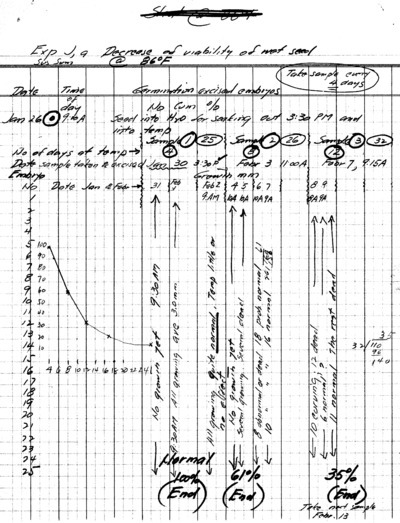 Exp J, a Decrease of viability of wet seed
@ 86°F
Take sample every
4 days
Date Time Germination excised embryos
of
day No Cum %
Jan 26 0 Seed into H2O for soaking at 3:30 PM and
into temp
Sample 1 25 Sample 2 26 Sample 3 32
No of days at temp → 4 8 12
Date sample taken & excised Jan 30 3:30P Febr 3 11:00A Febr 7, 9:15A
Embryo Growth mm
No. Date Jan & Febr → 31 Feb 1 Feb 2 4 5 6 7 8 9
9AM
1
2
3
4
5
6
7
8
9
10
11
12
13
14
15
16
17
18
19
20
21
22
23
24
25
100
80
60
40
20
4 6 8 10 12 14 16 18 20 22 24
No growth yet 9:30 AM
9:30 AM All growing ave 3.0 mm
All growing quite normal. Temp little or
no effect
No growth yet
Several growing. Several dead
8 abnormal or dead 18 prob normal
10 " " " 16 normal
10 curving; 12 dead
6 normal?
11 normal The rest dead
35
32 110
96
140
Normal
100% 61% 35%
(End) (End) (End)
Take next sample
Febr. 13